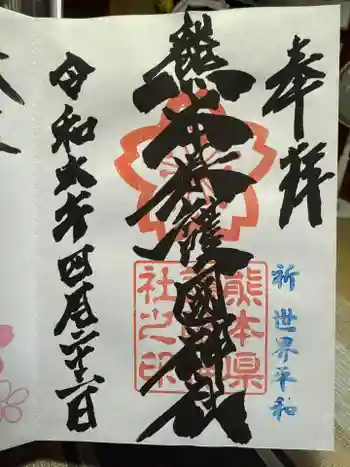 奉拝
祈 世界平和
熊本県護國神社
熊本県
護國神
社之印
令和六年四月二十六日